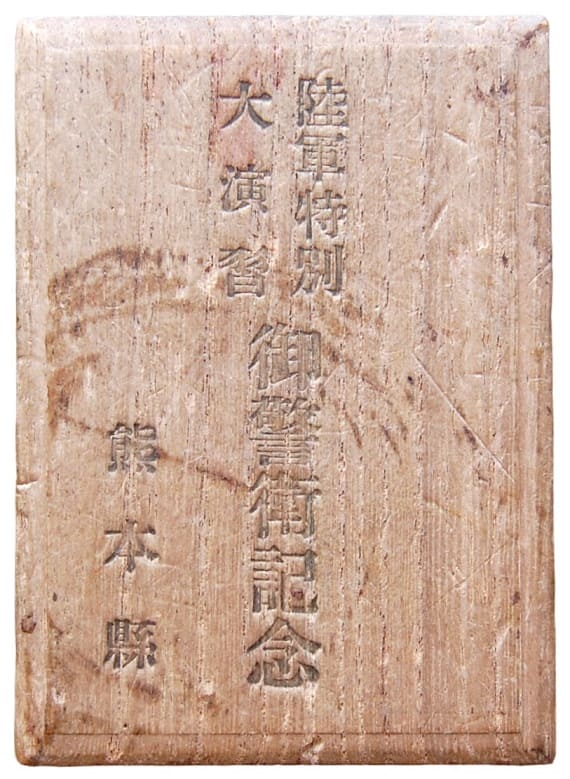 陸軍特別
大演習
御警衛記念
熊本縣